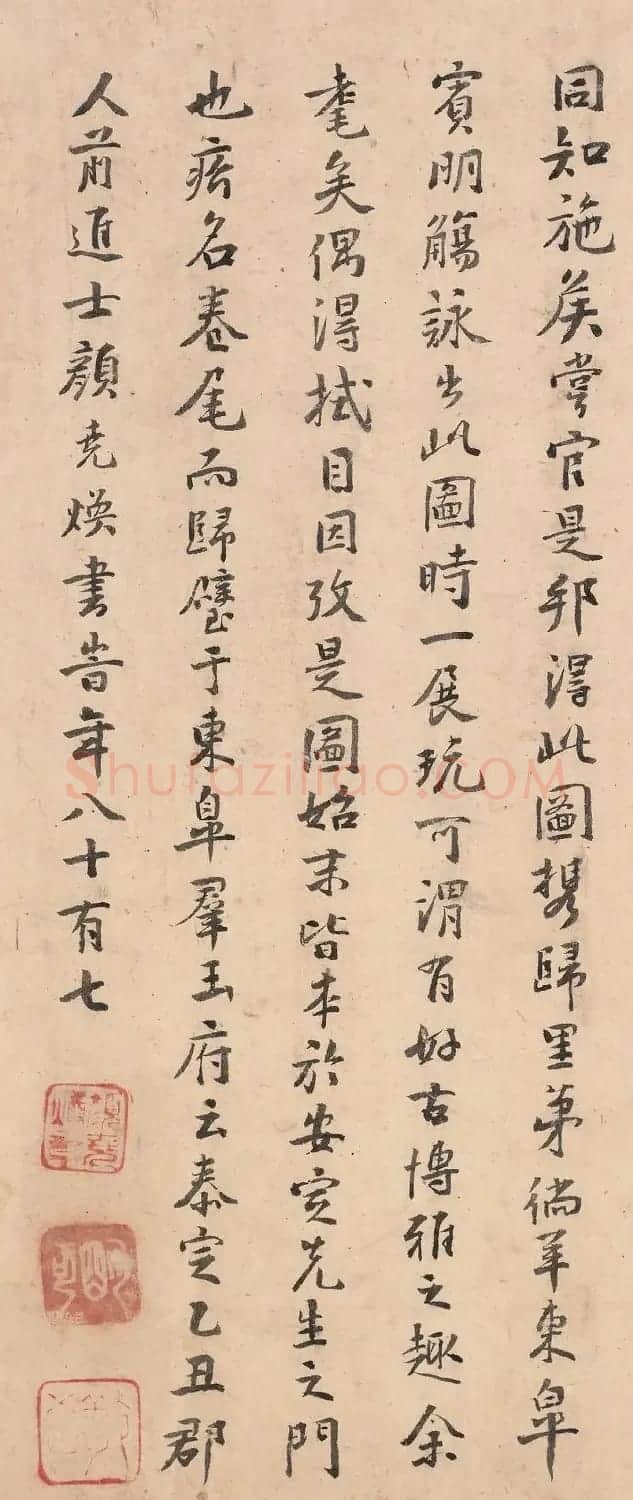 同知施矦嘗官是邦得此圖携歸里第徜羊東皐
賓朋觴詠出此圖時一展玩可謂有好古博雅之趣余
耄矣偶得拭目因攷是圖始末皆本於安定先生之門
也瘖名卷尾而歸璧于東皐羣玉府云泰定乙丑郡
人前進士顔堯焕書旹年八十有七
Shufaziliao.COM